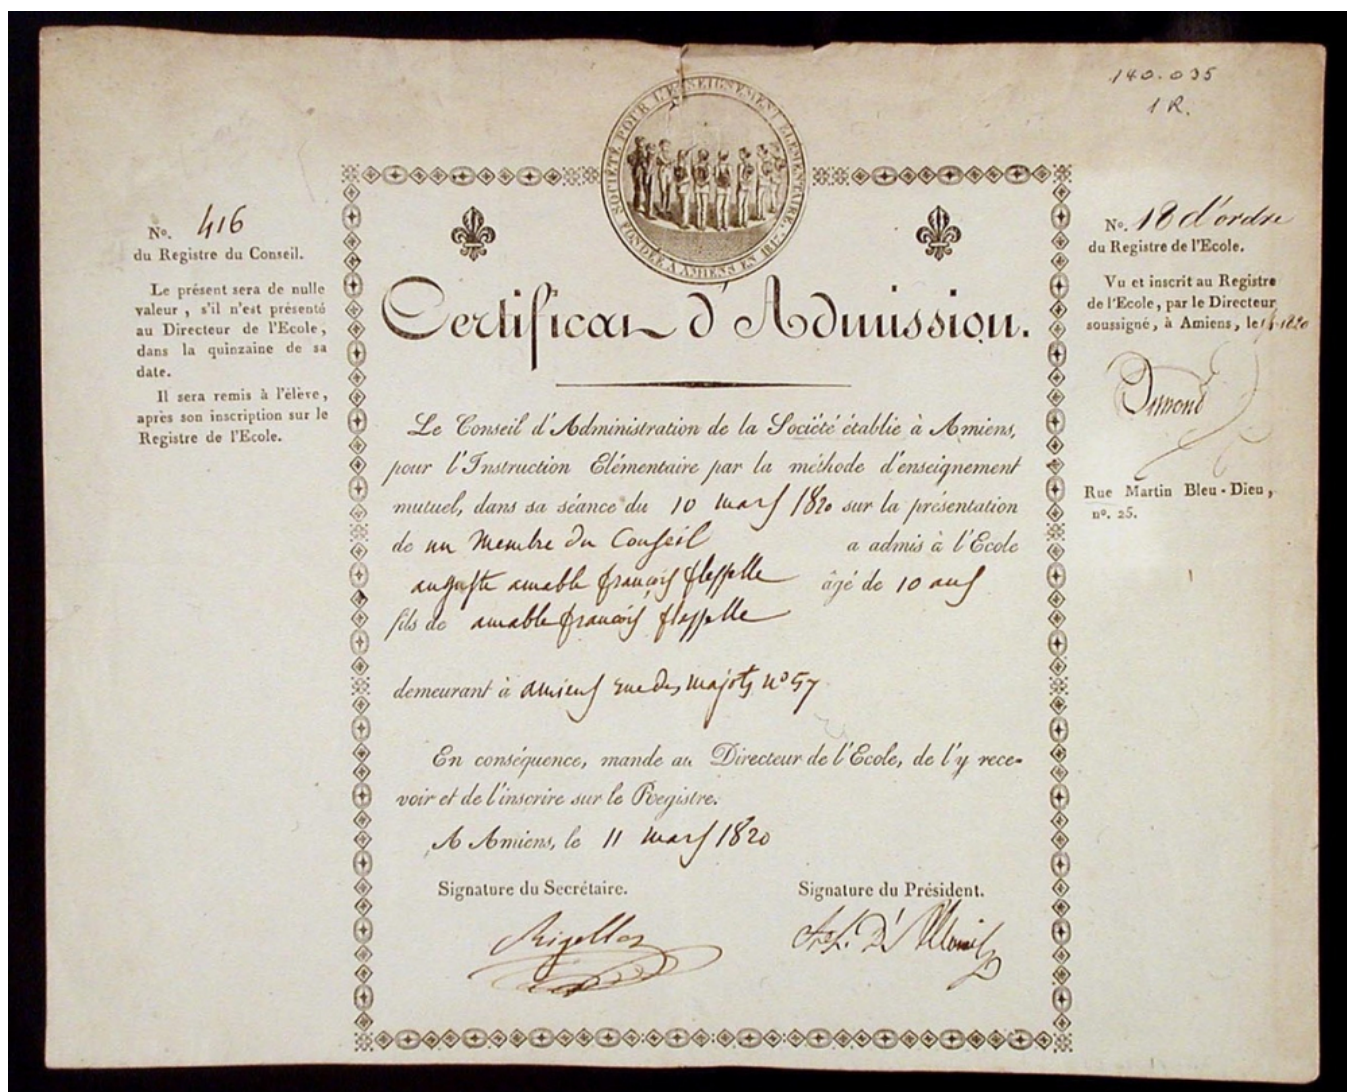 140.035
1 R.
SOCIÉTÉ POUR L'ENSEIGNEMENT ÉLÉMENTAIRE.
FONDÉE A AMIENS EN 1817.
No. 416
du Registre du Conseil.
Le présent sera de nulle
valeur, s'il n'est présenté
au Directeur de l'Ecole,
dans la quinzaine de sa
date.
Il sera remis à l'élève,
après son inscription sur le
Registre de l'Ecole.
Certificat d'Admission.
Le Conseil d'Administration de la Société établie à Amiens,
pour l'Instruction Elémentaire par la méthode d'enseignement
mutuel, dans sa séance du 10 mars 1820 sur la présentation
de un Membre du Conseil a admis à l'Ecole
auguste amable françois flesselle âgé de 10 ans
fils de amable françois flesselle
demeurant à amiens rue des majots n° 57
En conséquence, mande au Directeur de l'Ecole, de l'y rece-
voir et de l'inscrire sur le Registre.
A Amiens, le 11 mars 1820
Signature du Secrétaire. Signature du Président.
Rigollot
No. 18 d'ordre
du Registre de l'Ecole.
Vu et inscrit au Registre
de l'Ecole, par le Directeur
soussigné, à Amiens, le 1820
Rue Martin Bleu-Dieu,
n°. 25.